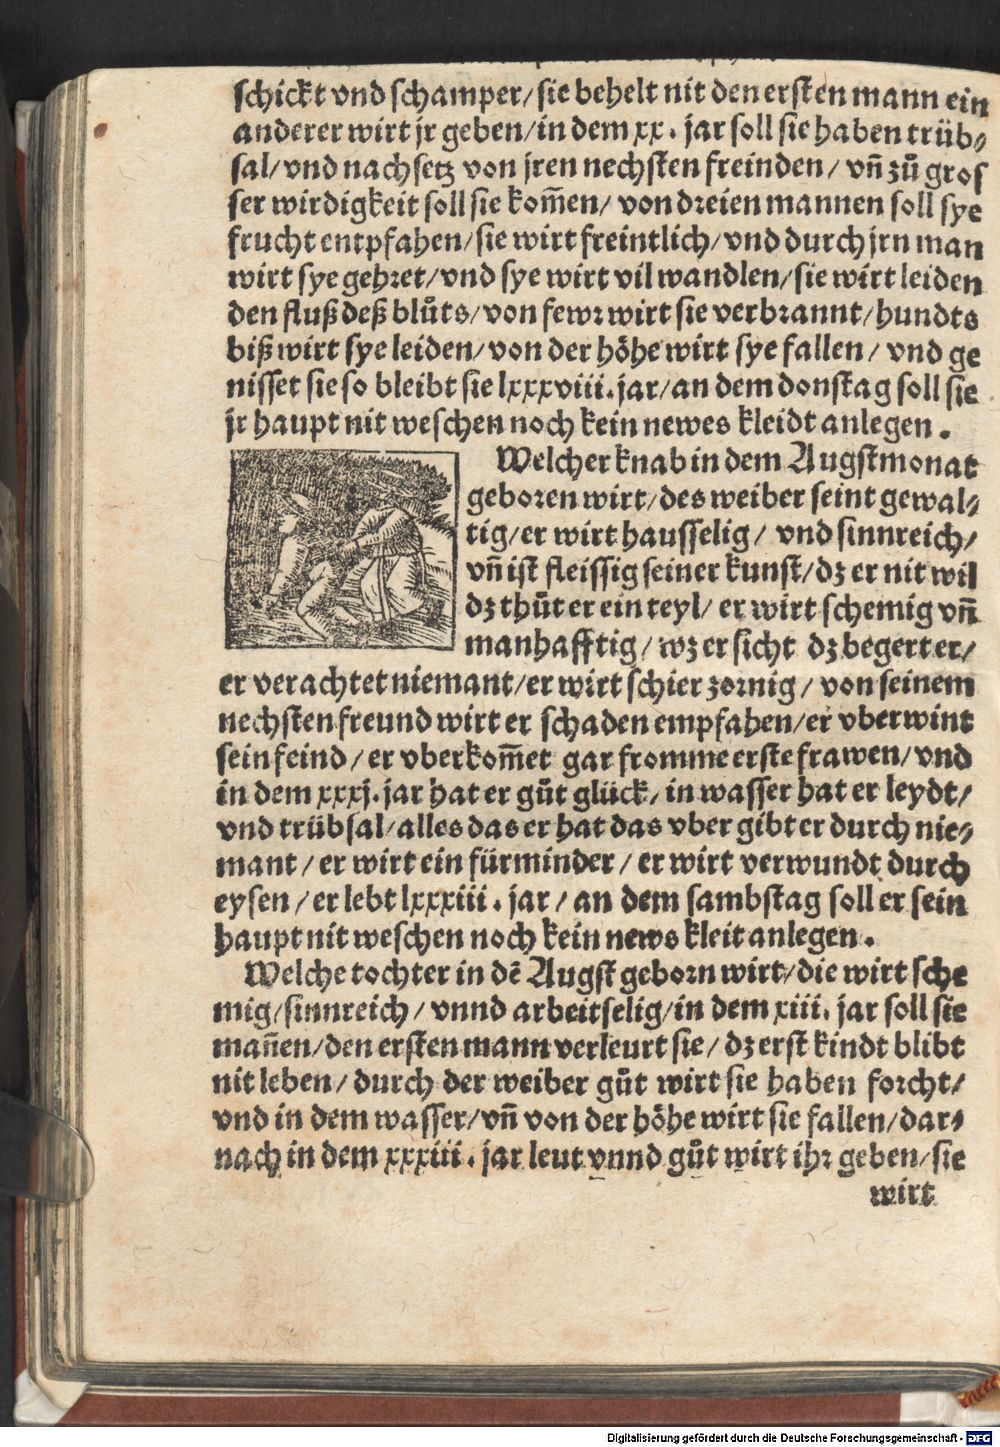 schickt vnd schamper/ sie behelt nit den ersten mann ein
anderer wirt jr geben/ in dem xx. jar soll sie haben trüb⸗
sal/ vnd nachsetz von jren nechsten freinden/ vñ zů gros
ser wirdigkeit soll sie kom̃en/ von dreien mannen soll sye
frucht entpfahen/ sie wirt freintlich/ vnd durch jrn man
wirt sye gehret/ vnd sye wirt vil wandlen/ sie wirt leiden
den fluß deß blůts/ von fewr wirt sie verbrannt/ hundts
biß wirt sye leiden/ von der höhe wirt sye fallen/ vnd ge
nisset sie so bleibt sie lxxxviii. jar/ an dem donstag soll sie
jr haupt nit weschen noch kein newes kleidt anlegen.
Welcher knab in dem Augstmonat
geboren wirt/ des weiber seint gewal⸗
tig/ er wirt hausselig/ vnd sinnreich/
vñ ist fleissig seiner kunst/ dz er nit wil
dz thůt er ein teyl/ er wirt schemig vñ
manhafftig/ wz er sicht dz begert er/
er verachtet niemant/ er wirt schier zornig/ von seinem
nechsten freund wirt er schaden empfahen/ er vberwint
sein feind/ er vberkom̃et gar fromme erste frawen/ vnd
in dem xxxj. jar hat er gůt glück/ in wasser hat er leydt/
vnd trübsal/ alles das er hat das vber gibt er durch nie⸗
mant/ er wirt ein fürminder/ er wirt verwundt durch
eysen/ er lebt lxxxiii. jar/ an dem sambstag soll er sein
haupt nit weschen noch kein news kleit anlegen.
Welche tochter in dẽ Augst geborn wirt/ die wirt sche
mig/ sinnreich/ vnnd arbeitselig/ in dem xiii. jar soll sie
mañen/ den ersten mann verleurt sie/ dz erst kindt blibt
nit leben/ durch der weiber gůt wirt sie haben forcht/
vnd in dem wasser/ vñ von der höhe wirt sie fallen/ dar⸗
nach in dem xxxiii. jar leut vnnd gůt wirt ihr geben/ sie
wirt
Digitalisierung gefördert durch die Deutsche Forschungsgemeinschaft - DFG